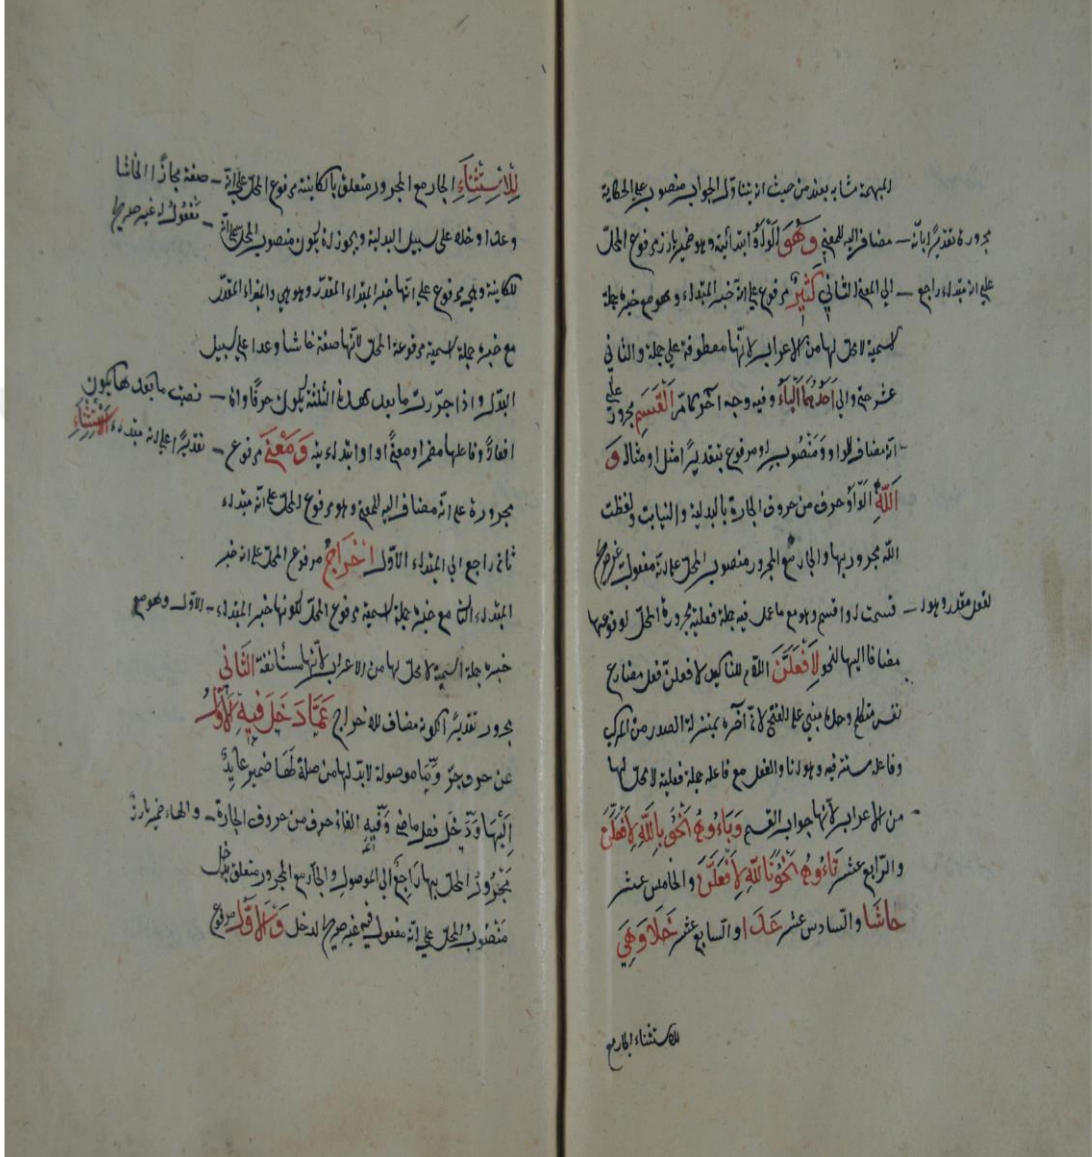 المبهمة مشابه بعند من حيث انه يتناول الجواب منصوب على الحكاية
مجرورة تقديرًا بانّه مضاف اليه للمعنى وَهُوَ اَلْوَاوُ ابتدائية وهو ضمير بارز مرفوع المحلّ
على انه مبتداء راجع الى المعنى الثاني كَثِيرٌ مرفوع على انّه خبر المبتداء وهو مع خبره جملة
اسمية لا محلّ لها من الاعراب لانّها معطوفة على جملة والثاني
عشر حتى والى اَحَدُهُمَا اَلْبَاءُ وفيه وجه آخر كما مرّ اَلْقَسَمِ مجرور على
انّه مضاف للواو وَمَنْصُوب او مرفوع بتقدير امثل او مثاله وَ
اَللّٰهِ اَلْوَاوُ حرف من حروف الجارة بالبدلية والنيابت ولفظت
اللّه مجرور بها والجار مع المجرور منصوب المحلّ على انّه مفعول غير صريح
لفعل مقدر وهو قسمت او اقسم وهو مع ما عمل فيه جملة فعلية مجرورة المحلّ لوقوعها
مضافا اليها لنحو لَاَفْعَلَنَّ اللّام للتأكيد لافعلنّ فعل مضارع
نفس متكلم وحده مبني على الفتح لانّ آخره بمنزلة الصدر من المركب
وفاعله مستتر فيه وهو انا والفعل مع فاعله جملة فعلية لا محلّ لها
من الاعراب لانّها جواب القسم وَبَاءُوهُ نَحْوُ بِاللّٰهِ لَاَفْعَلَنَّ
والرّابع عشر تَاءُوهُ نَحْوُ تَاللّٰهِ لَاَفْعَلَنَّ والخامس عشر
حَاشَا والسّادس عشر عَدَا والسّابع عشر خَلَا وَهِيَ
للاستثناء الجار مع
لِلْاِسْتِثْنَاءِ الجار مع المجرور متعلق بالكاينة مرفوع المحلّ على انّه صفة مجازًا لحاشا
وعدا وخلا على سبيل البدلية ويجوز له يكون منصوب المحلّ على انّه مفعول له غير صريح
للكاينة وهي مرفوع على انّها خبر المبتداء المقدّر وهو هي والمبتداء المقدّر
مع خبره جملة اسمية مرفوعة المحلّ لانّها صفة حاشا وعدا على سبيل
البدل واذا جرّرت ما بعد هذه الثلثة يكون حرفًا وان نصبت ما بعدها يكون
افعالًا وفاعلها مضمرا ومعنًى او او ابتدائية وَمَعْنَى مرفوع تقديرًا على انه مبتداء اِسْتِثْنَاءِ
مجرورة على انّه مضاف اليه للمعنى وهو مرفوع المحلّ على انّه مبتداء
ثاني راجع الى المبتداء الاوّل اِخْرَاجُ مرفوع المحلّ على انه خبر
المبتداء الثاني مع خبره جملة اسمية مرفوع المحلّ لكونها خبر المبتداء الاوّل وهو مع
خبره جملة اسمية لا محلّ لها من الاعراب لانّها مستأنفة الثَّانِي
مجرور تقديرًا لكونه مضاف للاخراج عَمَّا دَخَلَ فِيهِ الْاَوَّلُ
عن حرف جرّ وَمَا موصولة لابدّ لها من صلة لَهَا ضمير عايدٌ
اِلَيْهَا وَدَخَلَ فعل ماضى وَفِيهِ الفاءُ حرف من حروف الجارة والهاء ضمير بارزٌ
مَجْرُورُ المحلّ بها رَاجِعٌ الى الموصول والجارّ مع المجرور متعلق بدخل
مَنْصُوبُ المحلّ على انّه مفعول فيه غير صريح لدخل وَالْاَوَّلُ مرفوع